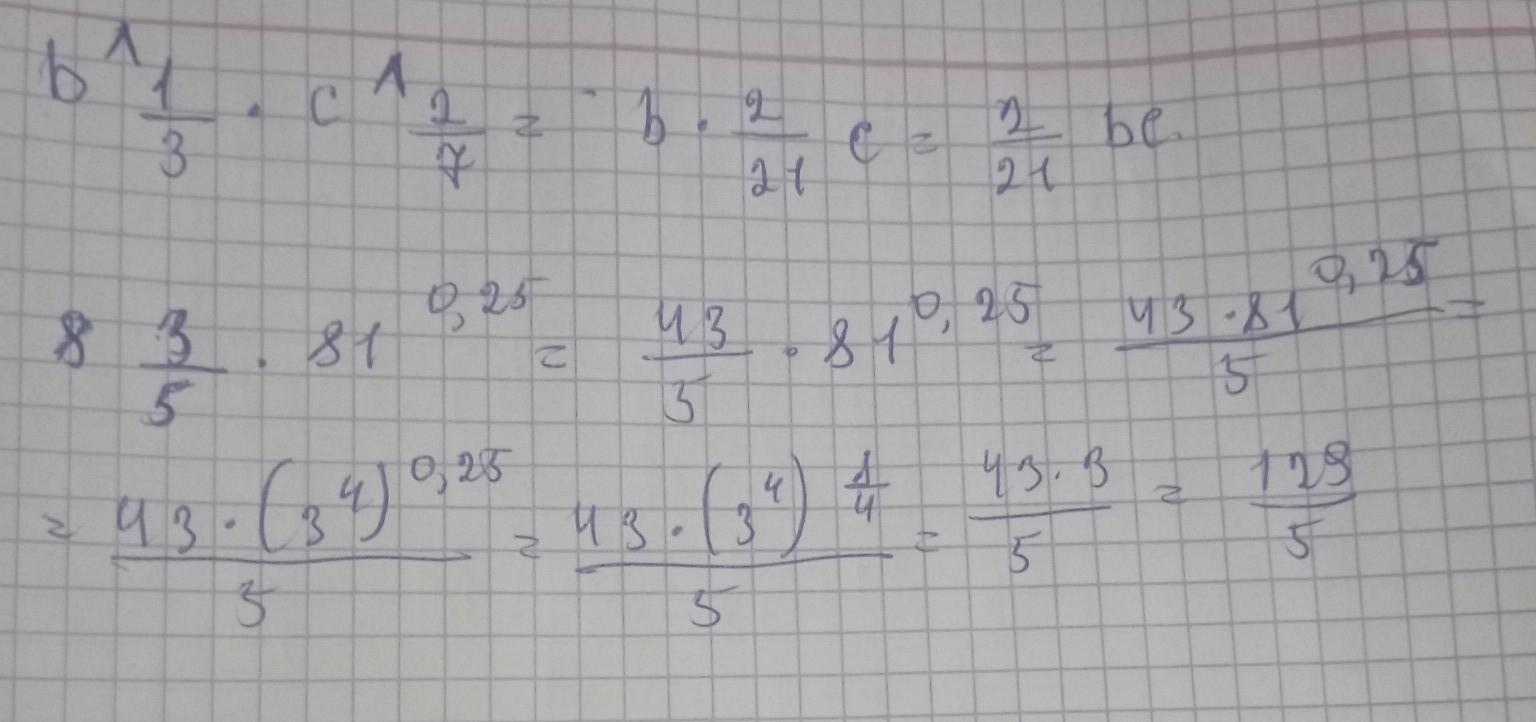 b^1/3 · c^2/7 = b · 2/21 c = 2/21 bc.
8 3/5 · 81^0,25 = 43/5 · 81^0,25 = (43 · 81^0,25)/5 =
= (43 · (3^4)^0,25)/5 = (43 · (3^4)^1/4)/5 = (43 · 3)/5 = 129/5